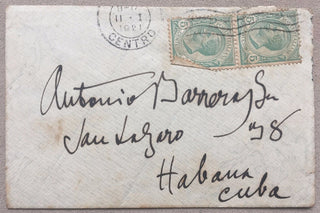 11-I
1921
CENTRO
5 5 5
Antonio Barrera
San Lázaro 98
Habana
Cuba